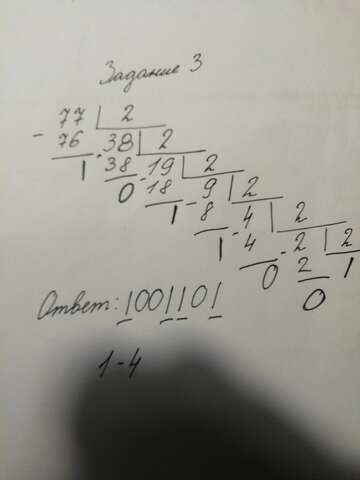 Задание 3
77 2
- 76 38 2
1 - 38 - 19 2
0 18 - 9 2
1 8 - 4 2
1 4 - 2 2
0 2 1
0
Ответ: 1001101
1-4